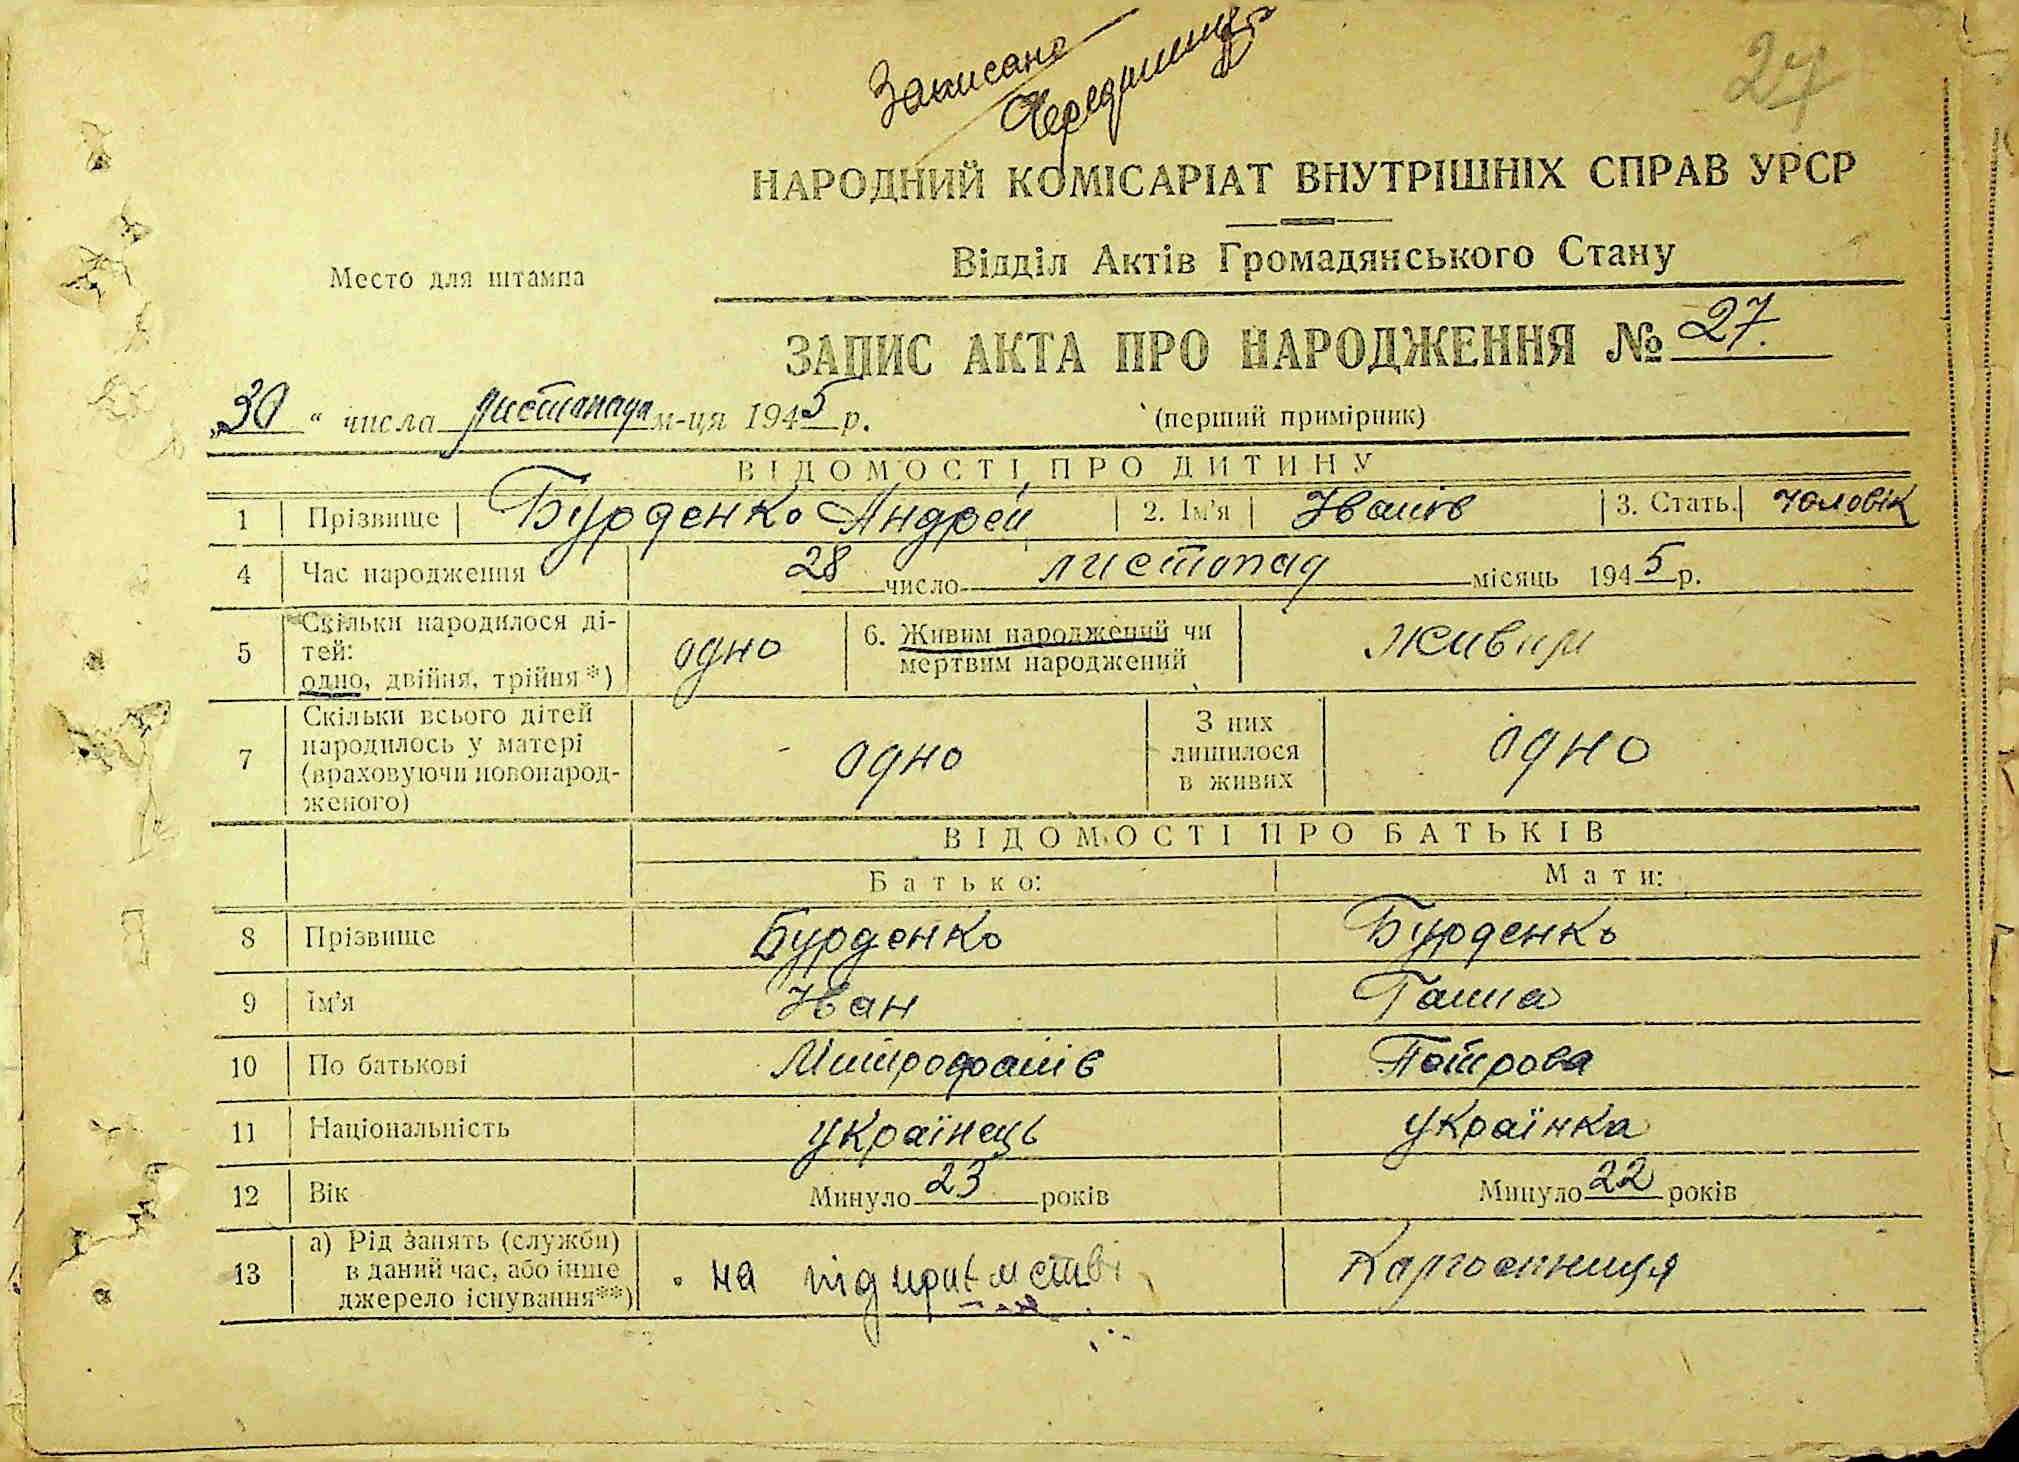 Записано
27
НАРОДНИЙ КОМІСАРІАТ ВНУТРІШНІХ СПРАВ УРСР
Відділ Актів Громадянського Стану
Место для штампа
ЗАПИС АКТА ПРО НАРОДЖЕННЯ № 27.
„30“ числа листопада м-ця 1945 р.
(перший примірник)
ВІДОМОСТІ ПРО ДИТИНУ
1 Прізвище Бурденко Андрей 2. Ім'я Іванів 3. Стать. чоловік
4 Час народження 28 число листопад місяць 1945 р.
5 Скільки народилося ді-
тей:
одно, двійня, трійня*) одно 6. Живим народжений чи
мертвим народжений живим
7 Скільки всього дітей
народилось у матері
(враховуючи новонарод-
женого) одно З них
лишилося
в живих одно
ВІДОМОСТІ ПРО БАТЬКІВ
Батько: Мати:
8 Прізвище Бурденко Бурденко
9 Ім'я Іван Ганна
10 По батькові Митрофанів Петрова
11 Національність українець українка
12 Вік Минуло 23 років Минуло 22 років
13 а) Рід занять (служби)
в даний час, або інше
джерело існування**) на підприємстві